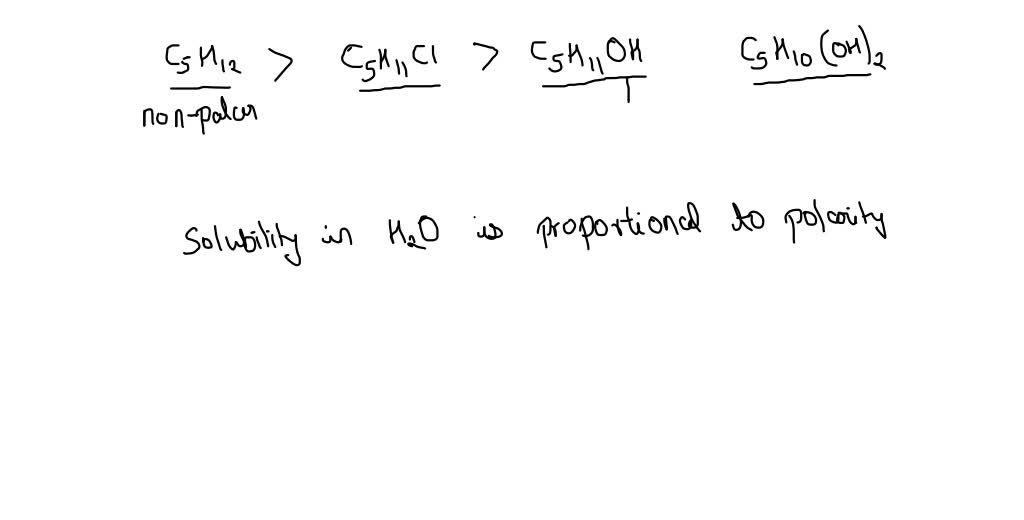 C₅H₁₂ > C₅H₁₁Cl > C₅H₁₁OH C₅H₁₀(OH)₂
non-polar
Solubility in H₂O is proportional to polarity